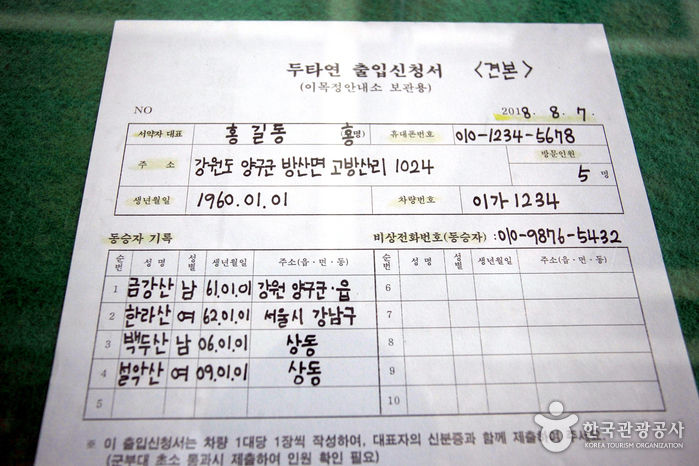 두타연 출입신청서 <견본>
(이목정안내소 보관용)
NO 2018. 8. 7.
서약자 대표 홍길동 홍 명) 휴대폰번호 010-1234-5678
주 소 강원도 양구군 방산면 고방산리 1024 방문인원 5 명
생년월일 1960.01.01 차량번호 이가 1234
동승자 기록 비상전화번호(동승자) : 010-9876-5432
순번 성 명 성별 생년월일 주소(읍·면·동) 순번 성 명 성별 생년월일 주소(읍·면·동)
1 금강산 남 61.01.01 강원 양구군·읍 6
2 한라산 여 62.01.01 서울시 강남구 7
3 백두산 남 06.01.01 상동 8
4 설악산 여 09.01.01 상동 9
5 10
※ 이 출입신청서는 차량 1대당 1장씩 작성하여, 대표자의 신분증과 함께 제출하여 주세요.
(군부대 초소 통과시 제출하여 인원 확인 필요)
한국관광공사
KOREA TOURISM ORGANIZATION